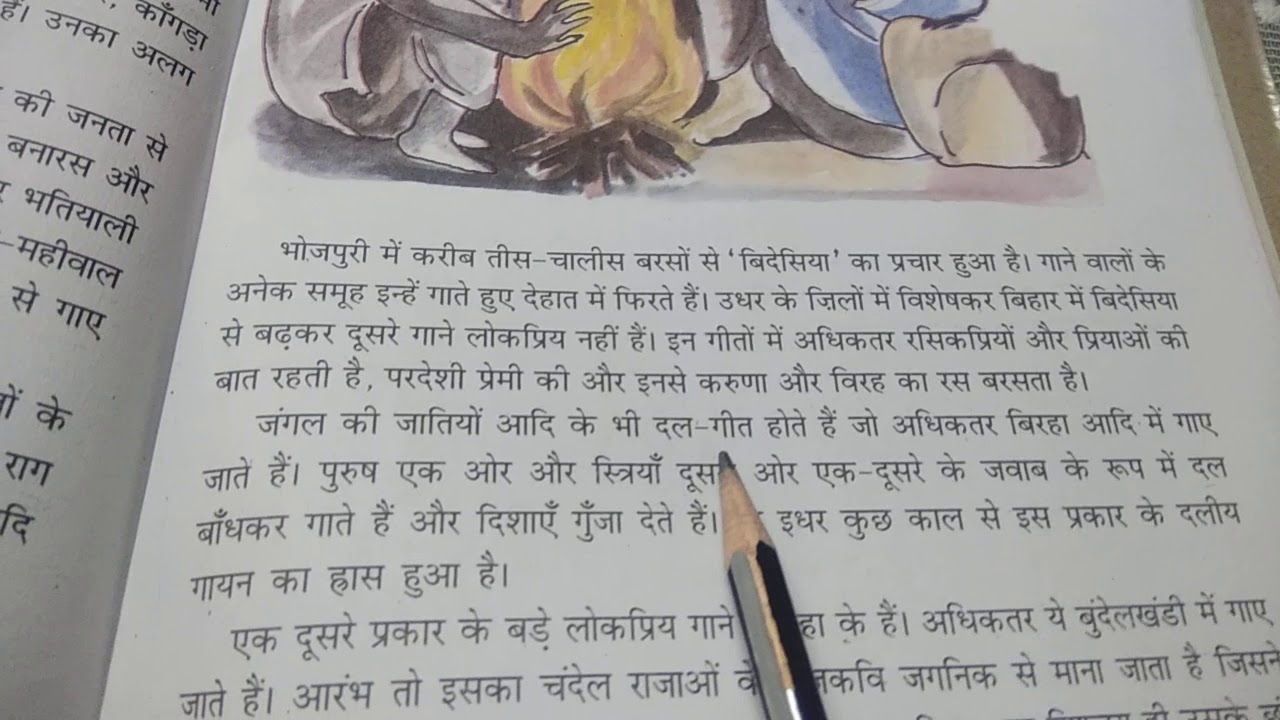 काँगड़ा
हैं। उनका अलग
की जनता से
बनारस और
भतियाली
-महीवाल
से गाए
के
राग
भोजपुरी में करीब तीस-चालीस बरसों से 'बिदेसिया' का प्रचार हुआ है। गाने वालों के
अनेक समूह इन्हें गाते हुए देहात में फिरते हैं। उधर के ज़िलों में विशेषकर बिहार में बिदेसिया
से बढ़कर दूसरे गाने लोकप्रिय नहीं हैं। इन गीतों में अधिकतर रसिकप्रियों और प्रियाओं की
बात रहती है, परदेशी प्रेमी की और इनसे करुणा और विरह का रस बरसता है।
जंगल की जातियों आदि के भी दल-गीत होते हैं जो अधिकतर बिरहा आदि में गाए
जाते हैं। पुरुष एक ओर और स्त्रियाँ ओर एक-दूसरे के जवाब के रूप में दल
बाँधकर गाते हैं और दिशाएँ गुँजा देते हैं। इधर कुछ काल से इस प्रकार के दलीय
गायन का ह्रास हुआ है।
एक दूसरे प्रकार के बड़े लोकप्रिय गाने के हैं। अधिकतर ये बुंदेलखंडी में गाए
जाते हैं। आरंभ तो इसका चंदेल राजाओं जगनिक से माना जाता है जिसने